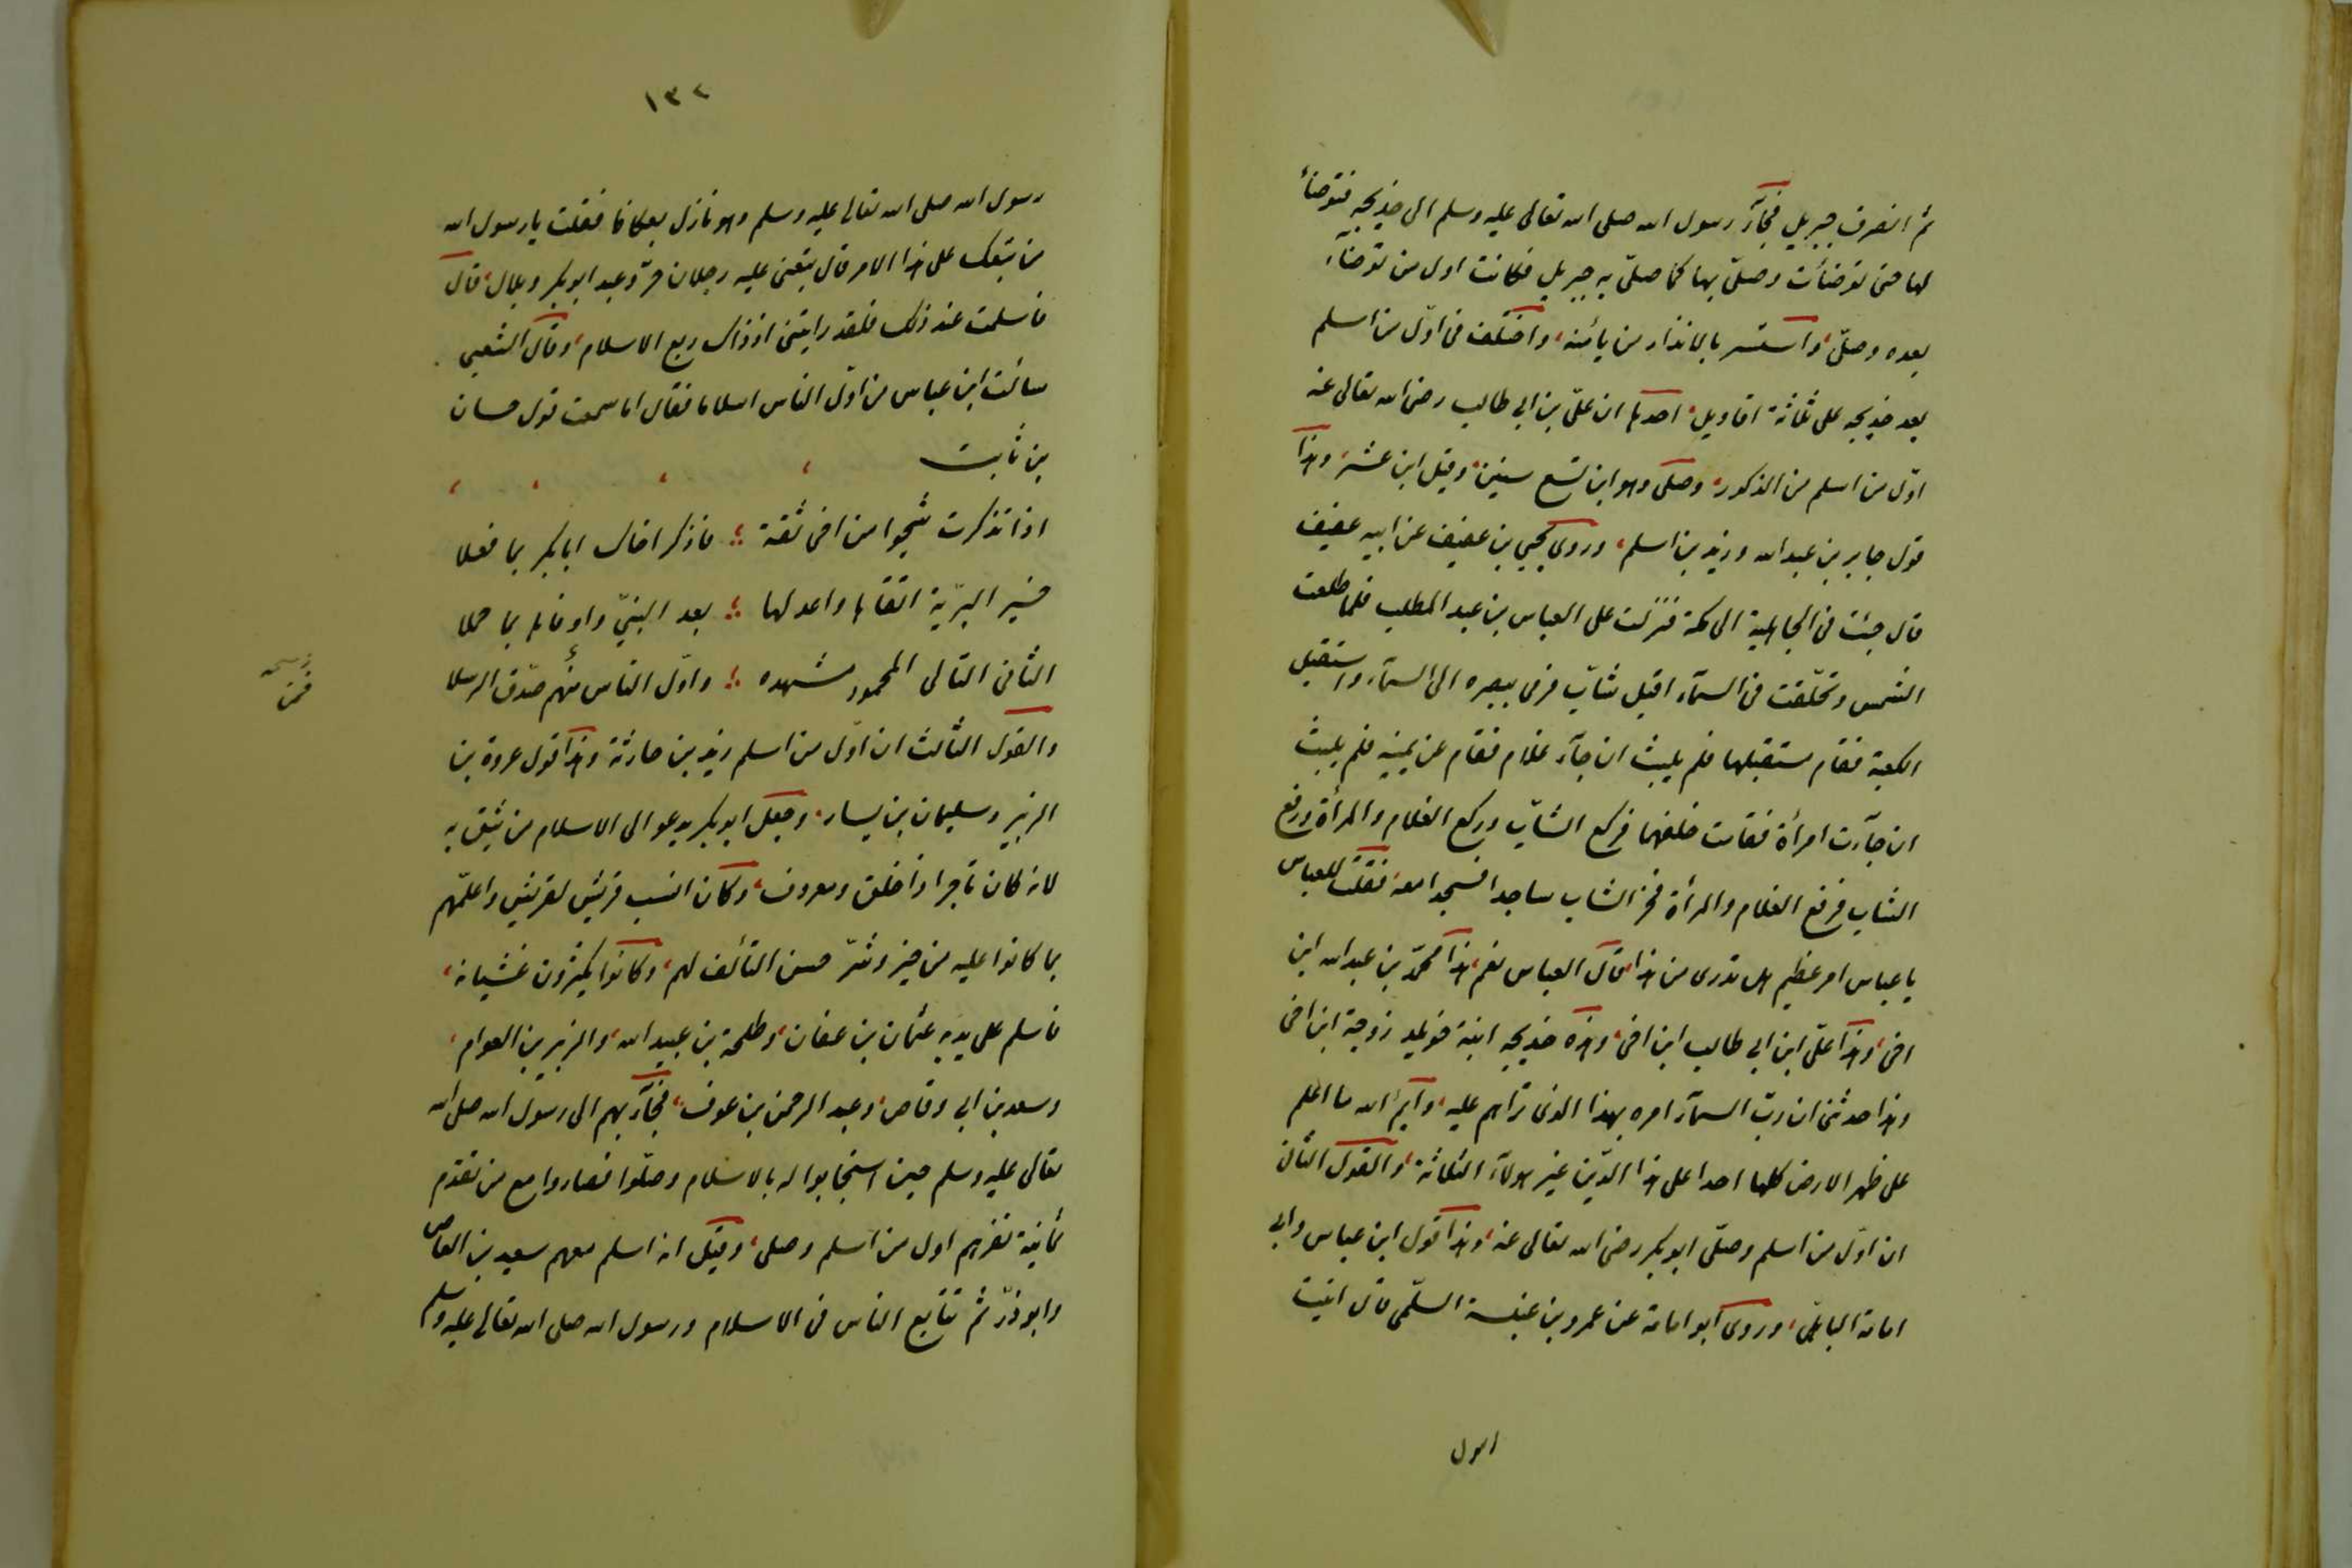 ثم انصرف جبريل فجآء رسول الله صلى الله تعالى عليه وسلم الى خديجه فتوضأ
لها حتى توضأت وصلّى بها كما صلّى به جبريل فكانت اول من توضأء
بعده وصلّى، واستسر بالانذار من يأمنه، واختلف فى اوّل من اسلم
بعد خديجه على ثلاثة اقاويل، احدها ان علىّ بن ابى طالب رضى الله تعالى عنه
اوّل من اسلم من الذكور، وصلى وهو ابن تسع سنين، وقيل ابن عشر، وهذا
قول جابر بن عبد الله وزيد بن اسلم، وروى يحيى بن عفيف عن ابيه عفيف
قال جئت فى الجاهلية الى مكة فنزلت على العباس بن عبد المطلب فلما طلعت
الشمس وتحلّقت فى السمآء اقبل شابّ فرمى ببصره الى السمآء واستقبل
الكعبة فقام مستقبلها فلم يلبث ان جآء غلام فقام عن يمينه فلم يلبث
ان جآءت امرأة فقامت خلفهما فركع الشابّ وركع الغلام والمرأة ورفع
الشاب فرفع الغلام والمرأة فخر الشاب ساجدا فسجدا معه فقلت للعباس
يا عباس امر عظيم هل تدرى من هذا، قال العباس نعم، هذا محمّد بن عبد الله ابن
اخى، وهذا علىّ ابن ابى طالب ابن اخى، وهذه خديجه ابنة خويلد زوجة ابن اخى
وهذا حدثنى ان ربّ السمآء امره بهذا الذى تراهم عليه، وآيم الله ما اعلم
على ظهر الارض كلها احدا على هذا الدّين غير هولآء الثلاثة، والقول الثانى
ان اوّل من اسلم وصلّى ابوبكر رضى الله تعالى عنه، وهذا قول ابن عباس وابى
امامة الباهلى، وروى ابو امامة عن عمرو بن عنبسة السلّمى قال اتيت
رسول
١٣٢
رسول الله صلى الله تعالى عليه وسلم وهو نازل بعكاظ فقلت يا رسول الله
من تبعك على هذا الامر قال تبعنى عليه رجلان حرّ وعبد ابوبكر وبلال، قال
فاسلمت عند ذلك فلقد رايتنى اذ ذاك ربع الاسلام، وقال الشعبى
سألت ابن عباس من اوّل الناس اسلاما فقال اما سمعت قول حسان
بن ثابت
اذا تذكرت شجوا من اخى ثقة ؛ فاذكر اخاك ابابكر بما فعلا
خير البرّية اتقاها واعدلها ؛ بعد النبىّ واوفاها بما حملا
الثانى التالى المحمود مشهده ؛ واوّل الناس منهم صدّق الرسلا
والقول الثالث ان اوّل من اسلم زيد بن حارثة وهذا قول عروة بن
الزبير وسليمان بن يسار، وجعل ابوبكر يدعو الى الاسلام من يثق به
لانه كان تاجرا ذا خلق ومعروف، وكان انسب قريش لقريش واعلمهم
بما كانوا عليه من خير وشرّ حسن التألف لهم، وكانوا يكثرون غشيانه،
فاسلم على يديه عثمان بن عفان، وطلحة بن عبيد الله، والزبير بن العوام،
وسعد بن ابى وقاص، وعبد الرحمن بن عوف، فجآء بهم الى رسول الله صلى الله
تعالى عليه وسلم حين استجابوا له بالاسلام وصلّوا فصاروا مع من تقدم
ثمانية نفر هم اول من اسلم وصلى، وقيل انه اسلم معهم سعيد بن العاص
وابو ذرّ ثم تتابع الناس فى الاسلام ورسول الله صلى الله تعالى عليه وسلم